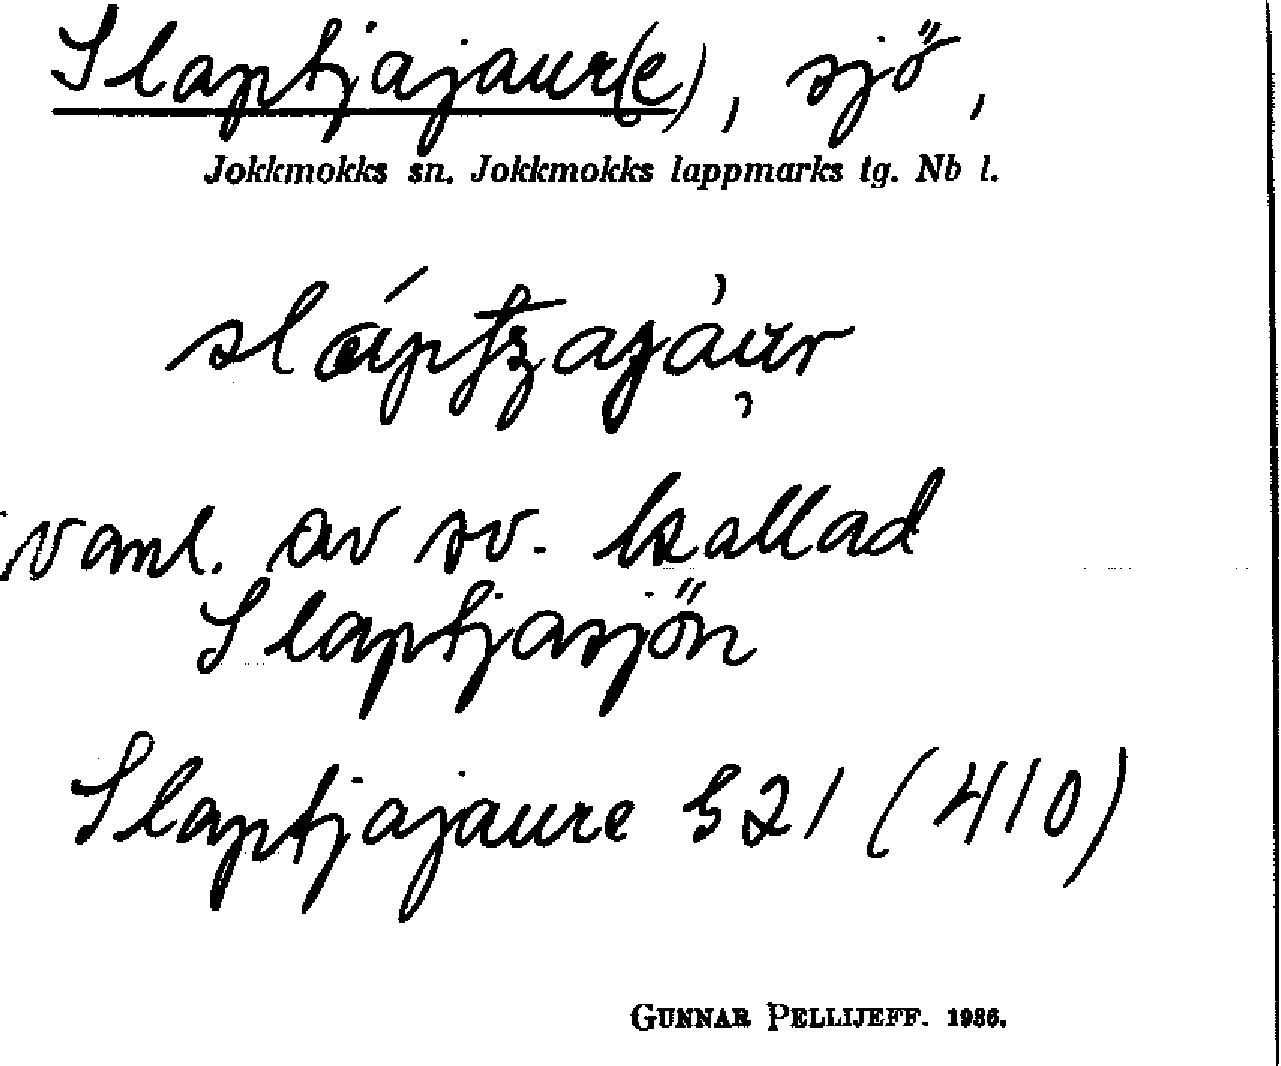 Slaptjajaur(e), sjö,
Jokkmokks sn. Jokkmokks lappmarks tg. Nb l.
vanl. av sv. kallad
Slaptjasjön
Slaptjajaure 521 (410)
GUNNAR PELLIJEFF. 1936.